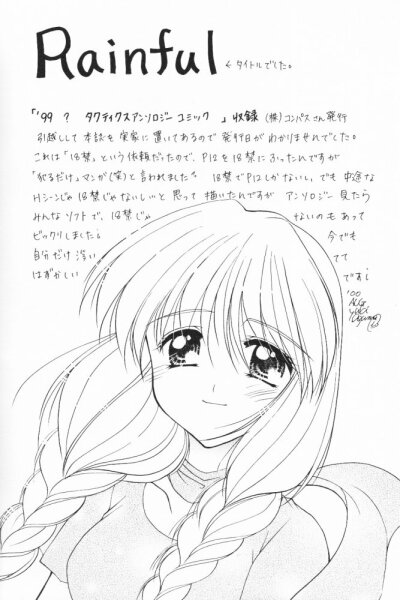 Rainful ← タイトルでした。
「'99 ? タクティクスアンソロジーコミック 」収録 (株)コンパスさん発行
引越しして本誌を実家に置いてあるので 発行日が わかりませんでした。
これは「18禁」という依頼だったので、P12を18禁に ったんですが
「犯るだけ」マンガ(笑)と言われました 18禁でP12しかないし、でも 中途な
Hシーンじゃ18禁じゃないしいと 思って 描いたんですが アンソロジー 見たら
みんなソフトで、18禁じゃ ないのも あって
ビックリしました 今でも
自分だけ 浮い てて
はずかしい です
'00